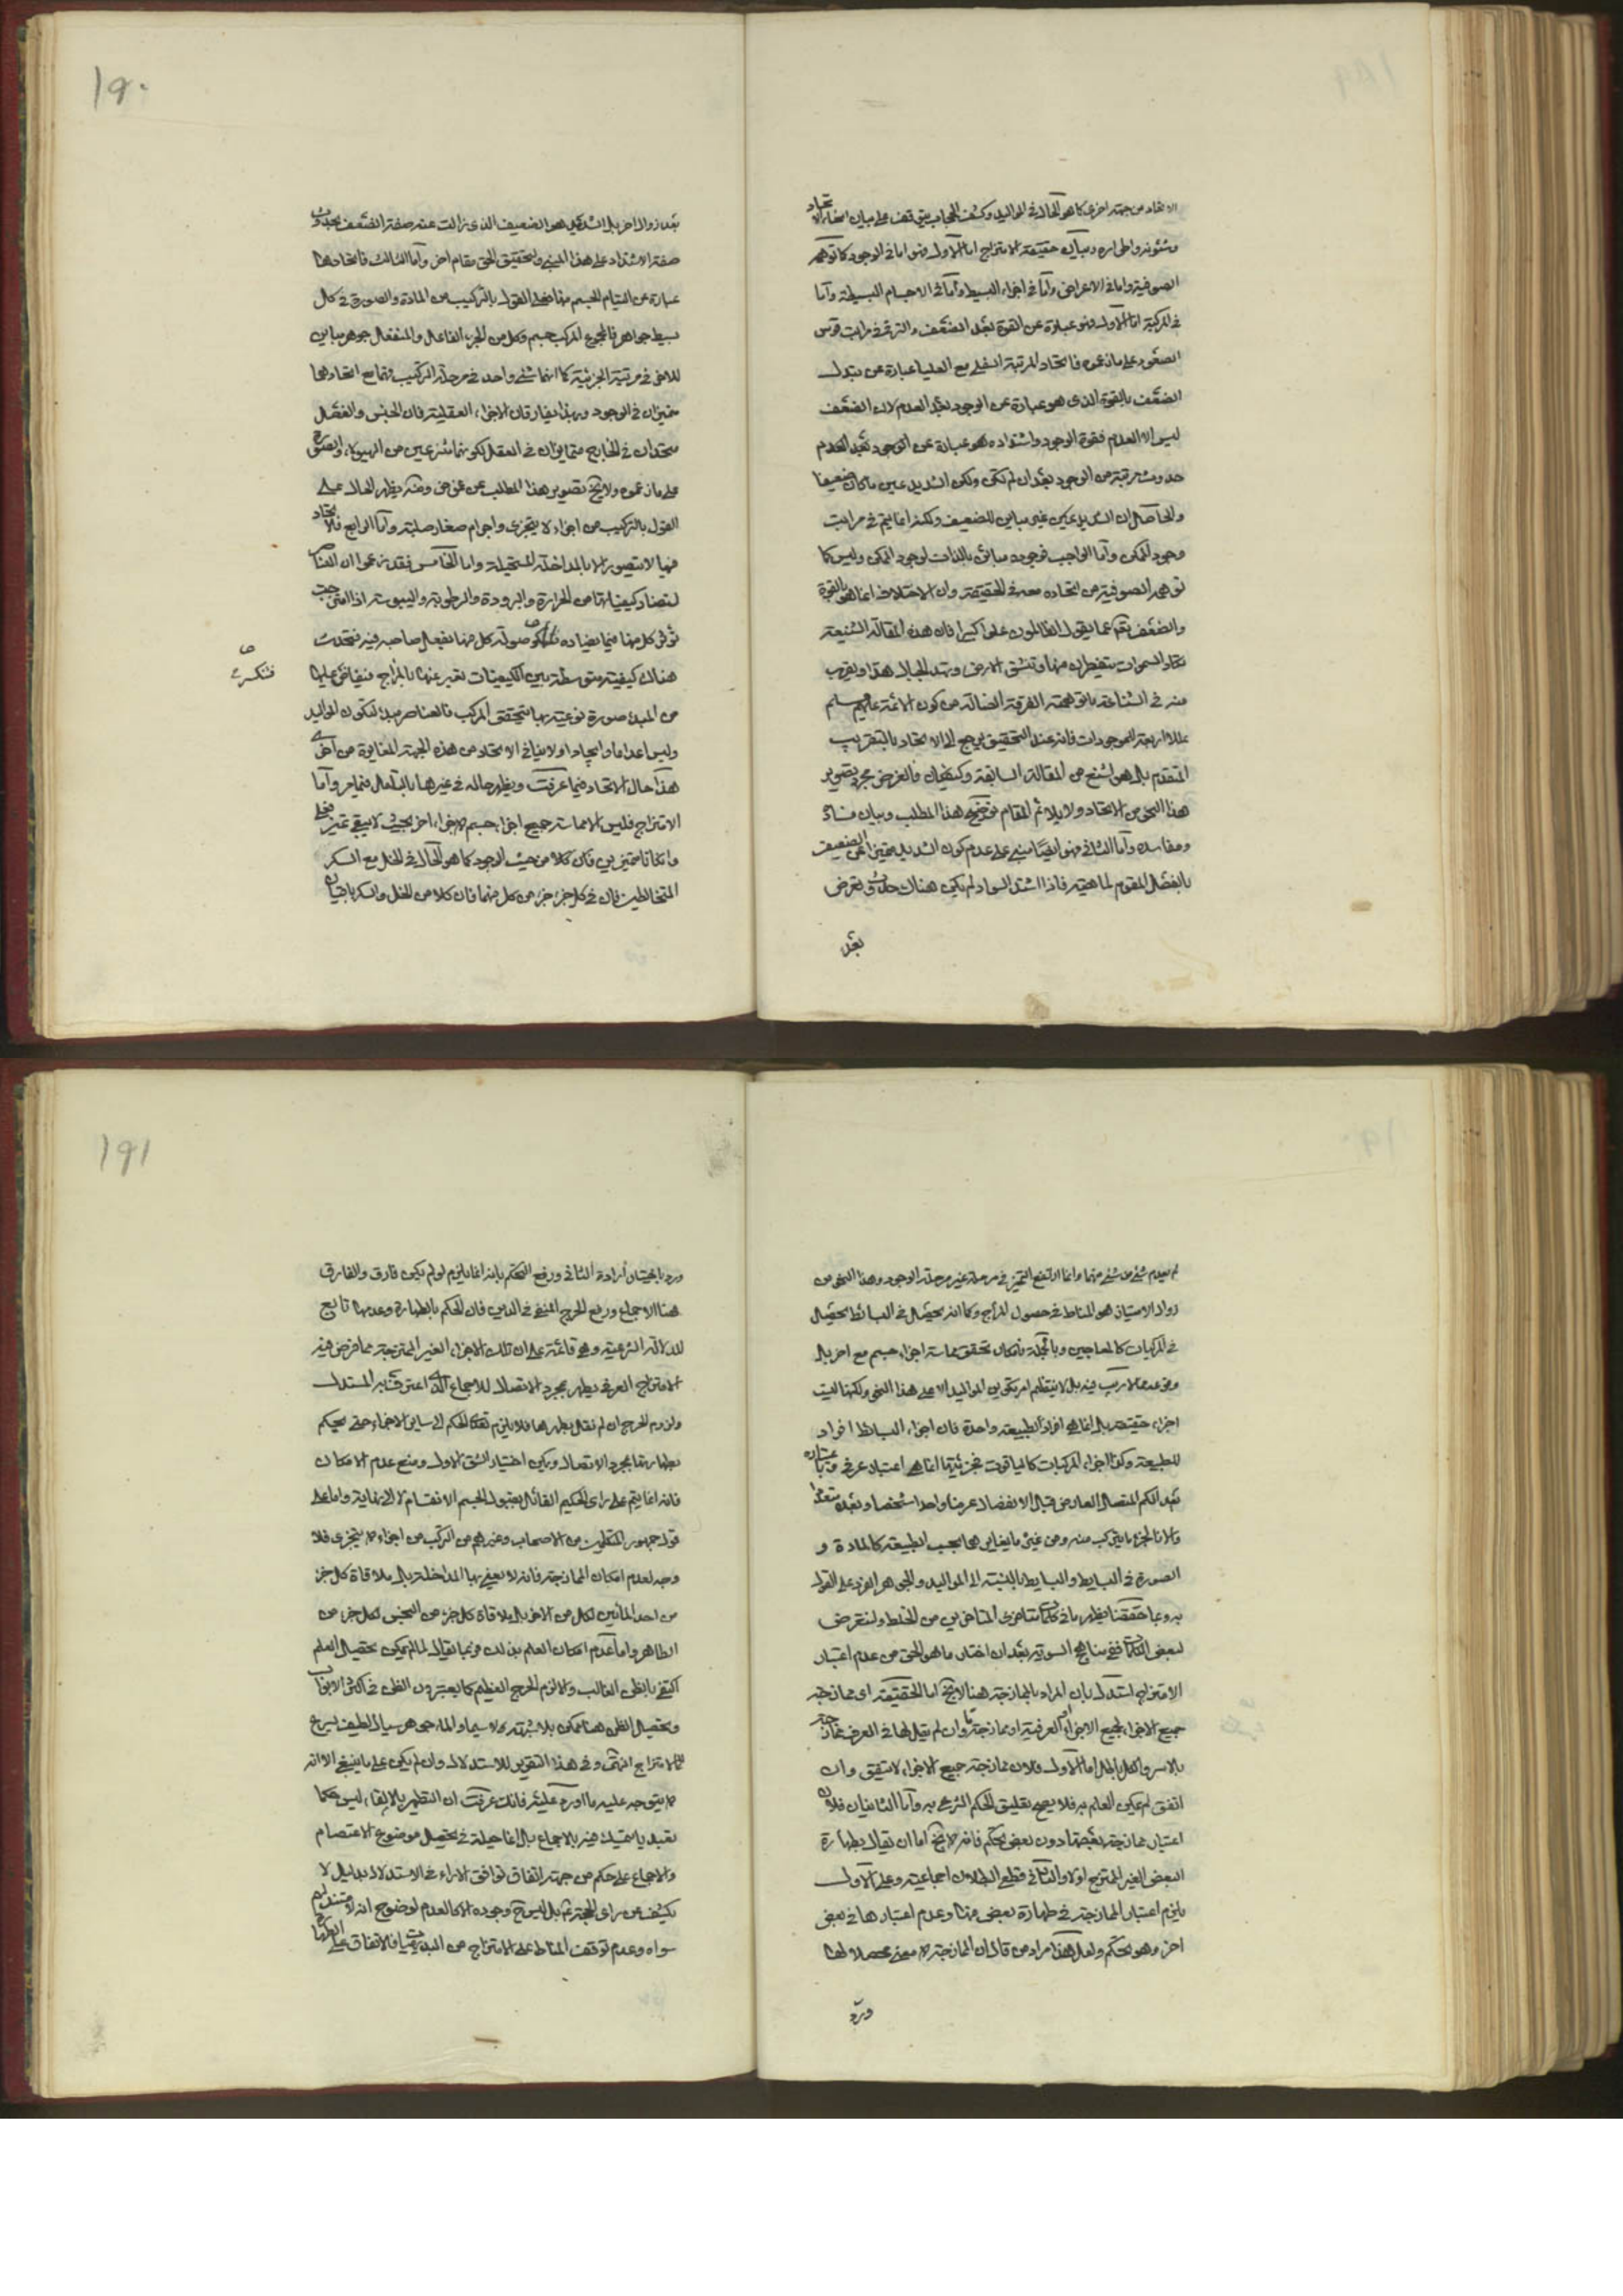 الاتحاد من جهة اخرى كما هو الحال في المواليد وكشف الحجاب يتوقف على بيان انحاء الاتحاد
وشئونه واطواره وبيان حقيقة الامتزاج اما الاول فهو اما في الوجود كما توهمه
الصوفية واما في الاعراض واما في اجزاء البسيط واما في الاجسام البسيطة واما
في المركبة اما الاول فهو عبارة عن القوة بعد الضعف والترقي في مراتب قوس
الصعود على ما زعموه فاتحاد المرتبة السفلى مع العليا عبارة عن تبدل
الضعف بالقوة الذى هو عبارة عن الوجود بعد العدم لان الضعف
ليس الا العدم فقوة الوجود واشتداده هو عبارة عن الوجود بعد العدم
حدوث مرتبة من الوجود بعد ان لم تكن ولكن الشديد عين ما كان ضعيفا
والحاصل ان الشديد عين غير مباين للضعيف ولكنه انما يتم في مراتب
وجود الممكن واما الواجب فوجوده مبائن بالذات لوجود الممكن وليس كما
توهمه الصوفية من اتحاده معه في الحقيقة وان الاختلاف انما هو بالقوة
والضعف تعالى عما يقول الظالمون علوا كبيرا فان هذه المقالة الشنيعة
تكاد السموات يتفطرن منها وتنشق الارض وتهد الجبال هدا ويقرب
منه في الشناعة ما توهمته الفرقة الضالة من كون الائمة عليهم سلم
عللا اربعة للموجودات فانه عند التحقيق يرجع الى الاتحاد بالتقريب
المتقدم بل هو اشنع من المقالة السابقة وكيف كان فالغرض مجرد تصوير
هذا النحو من الاتحاد ولا يلائم المقام توضيح هذا المطلب وبيان فساده
ومفاسده واما الثاني فهو ايضا مبني على عدم كون الشديد متميزا عن الضعيف
بالفصل المقوم لماهيته فاذا اشتد السواد لم يكن هناك حدوث عرض
بعد
١٩٠
بعد زوال اخر بل الشديد هو الضعيف الذى زالت عنه صفة الضعف بحدوث
صفة الاشتداد على هذا المبنى ولتحقيق الحق مقام اخر واما الثالث فاتحادهما
عبارة عن التيام الجسم منهما فعلى القول بالتركيب من المادة والصورة في كل
بسيط جواهر فالمجموع المركب جسم وكل من الجزء الفاعل والمنفعل جوهر مباين
للاخر في مرتبة الجزئية كما انهما شئ واحد في مرحلة التركيب فهما مع اتحادهما
متميزان في الوجود وبهذا يفارقان الاجزاء العقلية فان الجنس والفصل
متحدان في الخارج متمايزان في العقل لكونهما منتزعين من الهيولى والصورة
على ما زعموه ولا يخ تصوير هذا المطلب عن غموض ومنه يظهر الحال على
القول بالتركيب من اجزاء لا يتجزى واجرام صغار صلبة واما الرابع فالاتحاد
فيها لا يتصور الا بالمداخلة المستحيلة واما الخامس فقد زعموا ان العناصر
لتضاد كيفياتها من الحرارة والبرودة والرطوبة واليبوسة اذا امتزجت
تؤثر كل منها فيما يضاده صولة كل منها بفعل صاحبه فيه فتحدث
فتنكسر
هناك كيفية متوسطة بين الكيفيات تعبر عنها بالمزاج فيفاض عليها
من المبدء صورة نوعية بها يتحقق المركب فالعناصر مبدء لتكون المواليد
وليس اعداما وايجادا ولا ينافي الاتحاد من هذه الجهة المغايرة من اخرى
هذا حال الاتحاد فيما عرفت ويظهر حاله في غيرها بالتأمل فيما مر واما
الامتزاج فليس الا مماسة جميع اجزاء جسم لاجزاء اخر بحيث لا يبقى تميز فعلى
وان كانا متميزين فان كلا من حيث الوجود كما هو الحال في الخل مع السكر
المتخالطين فان في كل جزء جزء من كل منهما فان كلا من الخل والسكر باقيان
١٩١
لم يعدم شئ من شئ منهما وانما ارتفع التميز في مرحلة غير مرحلة الوجود وهذا النحو من
زوال الامتياز هو المناط في حصول المزاج وكما انه يحصل في البسائط يحصل
في المركبات كالمعاجين وبالجملة فامكان تحقق مماسة اجزاء جسم مع اخر بل
وقوعه مما لا ريب فيه بل لا ينتظم امر تكون المواليد الا على هذا النحو ولكنها ليست
اجزاء حقيقة بل انما هي افراد لطبيعة واحدة فان اجزاء البسائط افراد
للطبيعة وكذا اجزاء المركبات كالياقوت فجزئيتها انما هي اعتبار عرفي وباعتباره
تعد الكم المتصل العارض قبال الانفصال عرضا واحدا شخصا وبعده متعددا
والا فالجزء ما يتركب منه ومن غيره ما يغايرهما بحسب الطبيعة كالمادة و
الصورة في البسايط والبسايط بالنسبة الى المواليد والجوهر الفرد على القول
به وبما حققنا يظهر ما في كلمات متاخرى المتاخرين من الخلط ولنتعرض
لبعض الكلمات ففي مناهج السوية بعد ان اختار ما هو الحق من عدم اعتبار
الامتزاج استدل بان المراد بالممازجة هنا لا يخ اما الحقيقية اى ممازجة
جميع الاجزاء لجميع الاجزاء او العرفية او ممازجة ما وان لم يقل لها في العرف ممازجة
بالاسر والكل باطل اما الاول فلان ممازجة جميع الاجزاء لا يتفق وان
اتفق لم يمكن العلم به فلا يصح تعليق الحكم الشرعي به واما الثانيان فلان
اعتبار ممازجة بعضها دون بعض تحكم فانه لا يخ اما ان يقال بطهارة
البعض الغير الممتزج اولا والثاني قطع البطلان اجماعية وعلى الاول
يلزم اعتبار الممازجة في طهارة بعض منها وعدم اعتبارها في بعض
اخر وهو تحكم ولعل هذا مراد من قال ان الممازجة لا معنى محصلا لها
ورد
ورد باختيار ارادة الثاني ورفع التحكم بانه انما يلزم لو لم يكن فارق والفارق
هنا الاجماع ورفع الحرج المنفي في الدين فان الحكم بالطهارة وعدمها تابع
للدلالة الشرعية وهي قائمة على ان تلك الاجزاء الغير الممتزجة مما فرض فيه
الامتزاج العرفي يطهر بمجرد الاتصال للاجماع الذي اعترف به المستدل
ولزوم الحرج ان لم نقل بطهرها فلا يلزم تعدى الحكم الى ساير الاجزاء حتى يحكم
بطهارتها بمجرد الاتصال ويمكن اختيار الشق الاول ومنع عدم الامكان
فانه انما يتم على راى الحكيم القائل بقبول الجسم الانقسام لا الى نهاية واما على
قول جمهور المتكلمين من الاصحاب وغيرهم من التركب من اجزاء لا يتجزى فلا
وجه لعدم امكان الممازجة فانه لا يعنى بها المداخلة بل ملاقاة كل جزء
من احد المائين لكل من الاخر بل ملاقاة كل جزء من النجس لكل جزء من
الطاهر واما عدم امكان العلم بذلك فربما يقال لما لم يمكن تحصيل العلم
اكتفى بالظن الغالب والا لزم الحرج العظيم كما يعتبرون الظن في اكثر الابواب
وتحصيل الظن هنا ممكن بلا شبهة لا سيما والماء جوهر سيال لطيف سريع
للامتزاج انتهى وفي هذا التقرير للاستدلال وان لم يكن على ما ينبغي الا انه
لا يتوجه عليه ما اورد عليه فانك عرفت ان التطهير بالالقاء ليس حكما
تعبديا يتمسك فيه بالاجماع بل انما حيلة في تحصيل موضوع الاعتصام
والاجماع على حكم من جهة اتفاق توافق الاراء في الاستدلال بدليل لا
يكشف عن راى الحجة ثم بل ليس ح وجوده الا كالعدم لوضوح انه لا مستند لهم
سواه وعدم توقف المناط على الامتزاج من البديهيات فالاتفاق على الطهارة